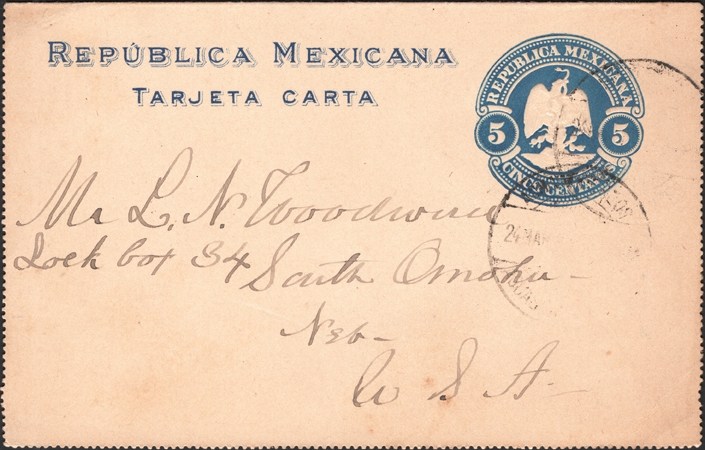 REPÚBLICA MEXICANA
TARJETA CARTA
REPUBLICA MEXICANA
5 5
CINCO CENTAVOS
Mr L. N. Woodward
Lock box 34
South Omaha -
Neb -
U S A -